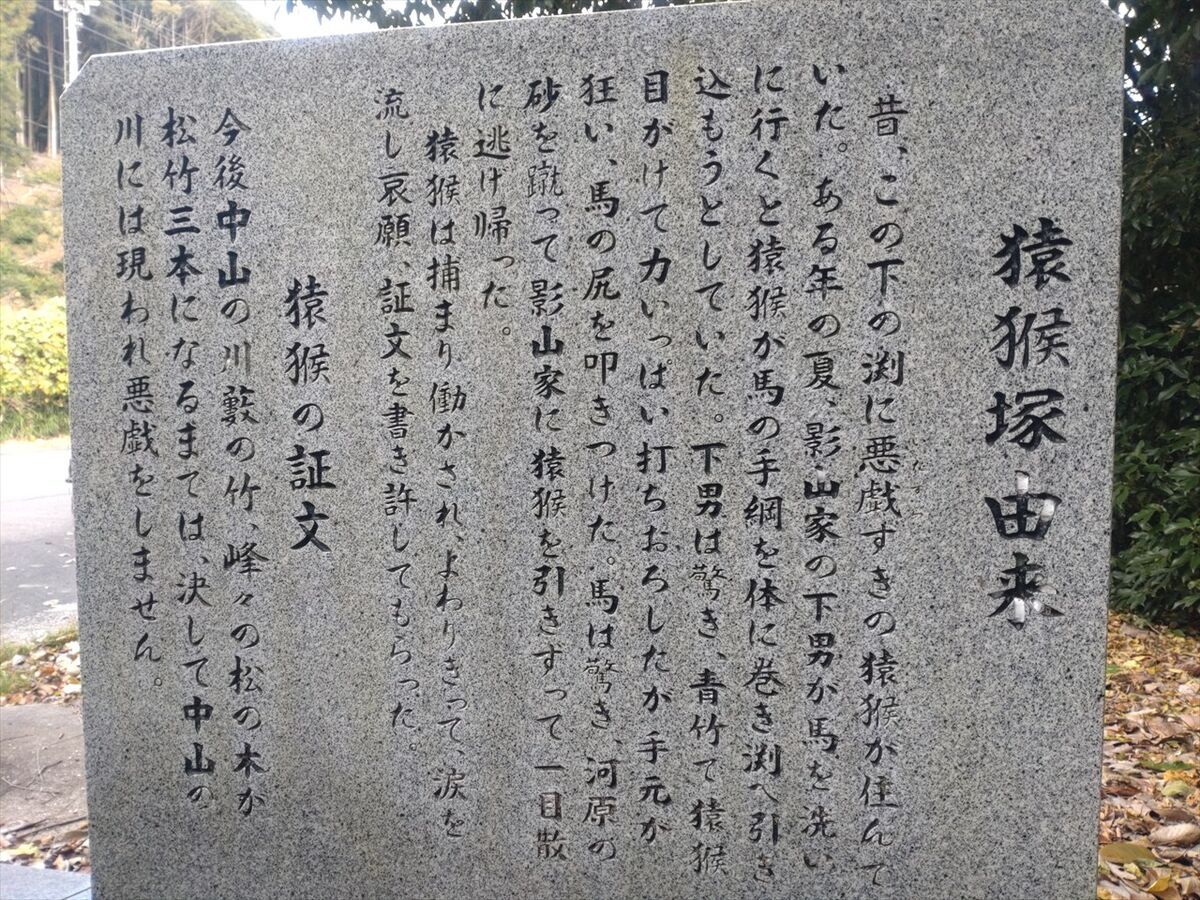 猿猴塚由来
昔、この下の渕に悪戯すきの猿猴が住んで
いた。ある年の夏、影山家の下男が馬を洗い
に行くと猿猴が馬の手綱を体に巻き渕へ引き
込もうとしていた。下男は驚き、青竹で猿猴
目がけて力いっぱい打ちおろしたが手元が
狂い、馬の尻を叩きつけた。馬は驚き、河原の
砂を蹴って影山家に猿猴を引きずって一目散
に逃げ帰った。
猿猴は捕まり働かされ、よわりきって、涙を
流し哀願、証文を書き許してもらった。
猿猴の証文
今後中山の川藪の竹、峰々の松の木が
松竹三本になるまでは、決して中山の
川には現われ悪戯をしません。